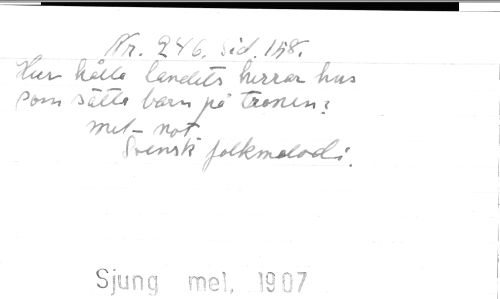 Nr. 246. Sid. 158.
Hur hålla landets herrar hus
som sätta barn på tronen?
mel- not
Svensk folkmelodi.
Sjung mel, 1907